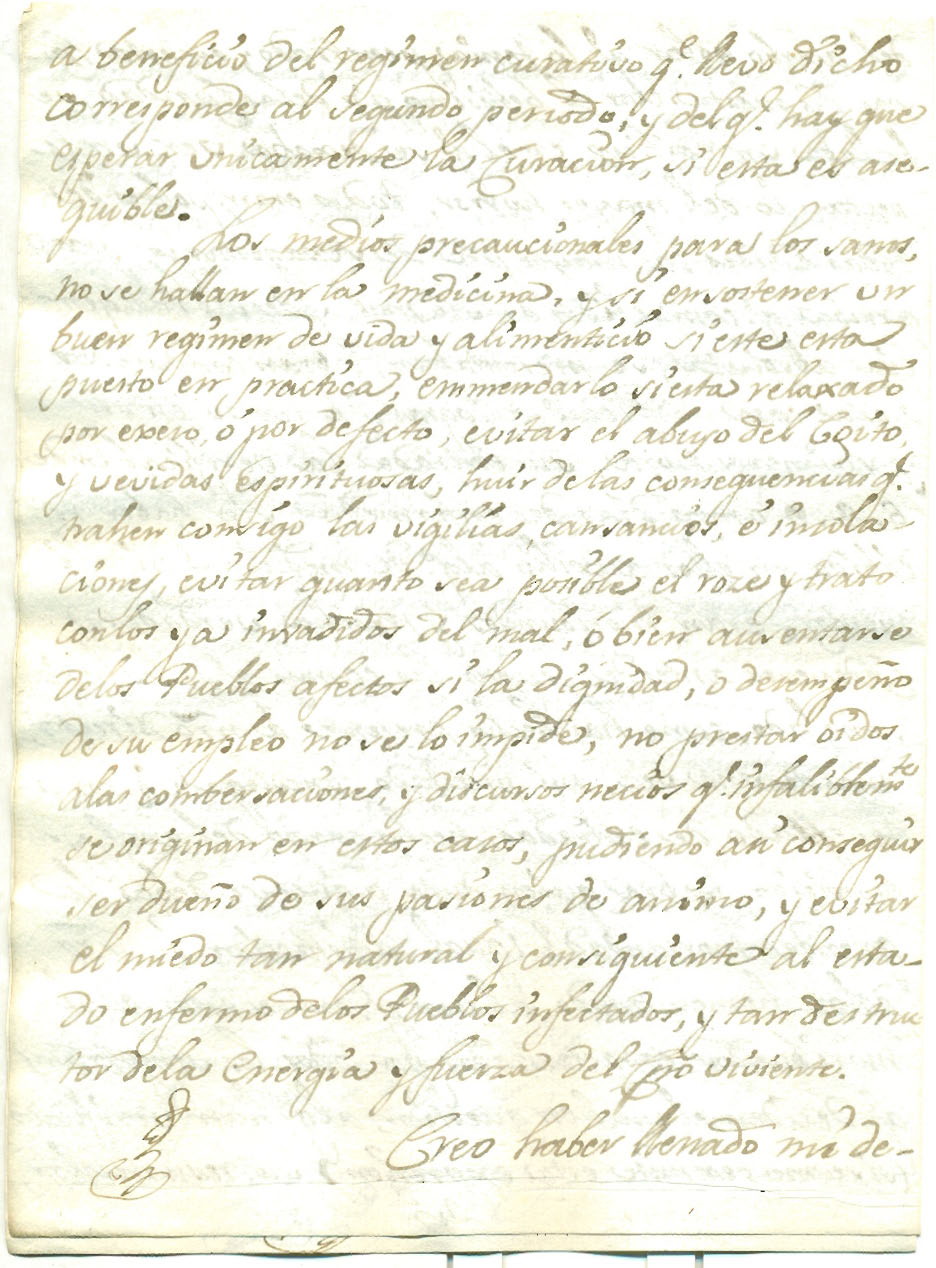 a beneficio del regimen curativo q.e llevo dicho
corresponde al segundo periodo, y del q.e hay que
esperar unicamente la Curacion, si esta es ase-
quible.
Los medios precaucionales para los sanos,
no se hallan en la medicina, y si en sostener un
buen regimen de vida y alimenticio si este esta
puesto en practica, emmendarlo si esta relaxado
por exeso, ó por defecto, evitar el abuso del Coito,
y vevidas espirituosas, huir delas consequencias q.e
trahen consigo las vigilias, cansancios, é insola-
ciones, evitar quanto sea posible el roze y trato
conlos ya invadidos del mal, ó bien ausentarse
delos Pueblos afectos si la dignidad, o desempeño
de su empleo no se lo impide, no prestar oidos
alas combersaciones, y discursos necios q.e infaliblem.te
se originan en estos casos, pudiendo asi conseguir
ser dueño de sus pasiones de animo, y evitar
el miedo tan natural y consiguiente al esta-
do enfermo delos Pueblos infectados, y tan destruc
tor dela Energia y fuerza del viviente.
Creo haber llenado mi de-